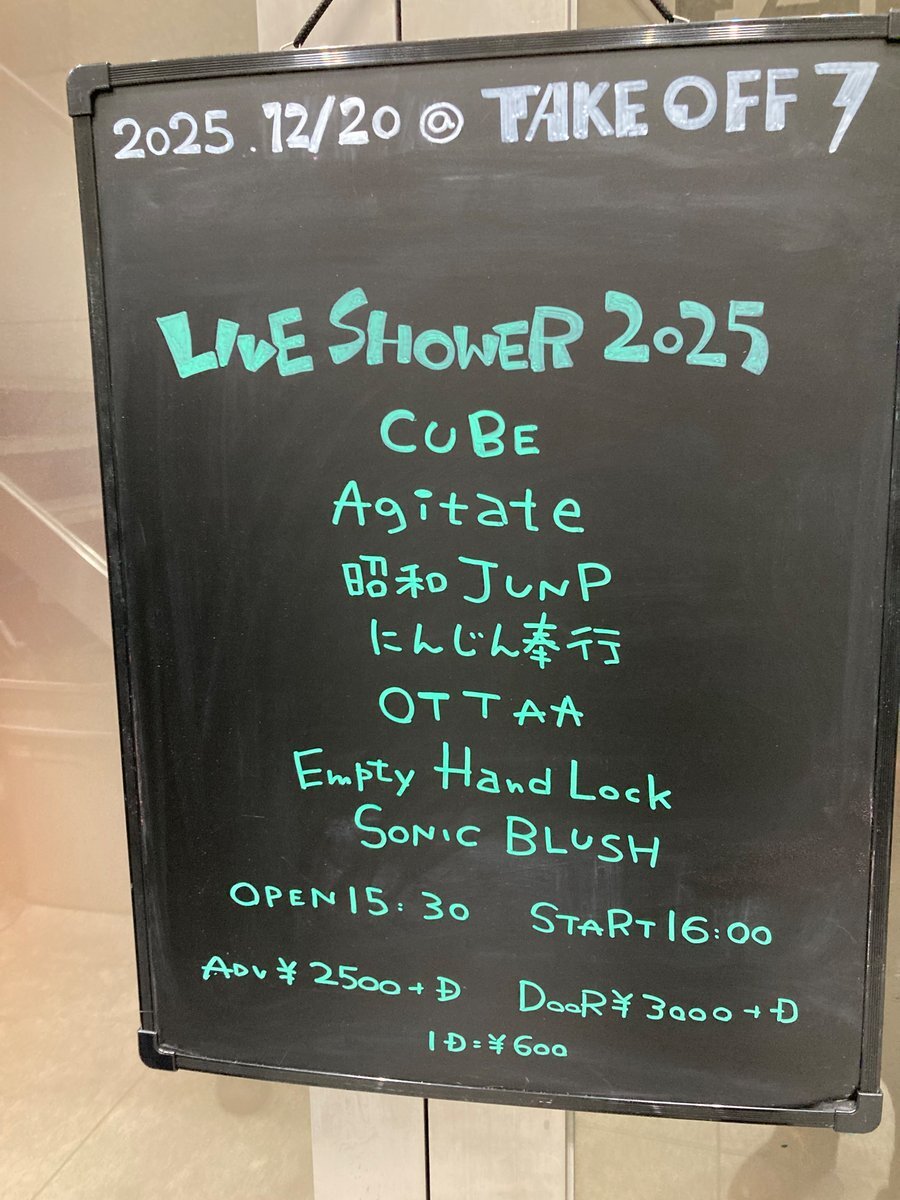 2025.12/20 @ TAKE OFF 7
LIVE SHOWER 2025
CUBE
Agitate
昭和JUNP
にんじん奉行
OTTAA
Empty Hand Lock
SONIC BLUSH
OPEN 15:30 START 16:00
ADV ¥2500+D DOOR ¥3000+D
1D=¥600